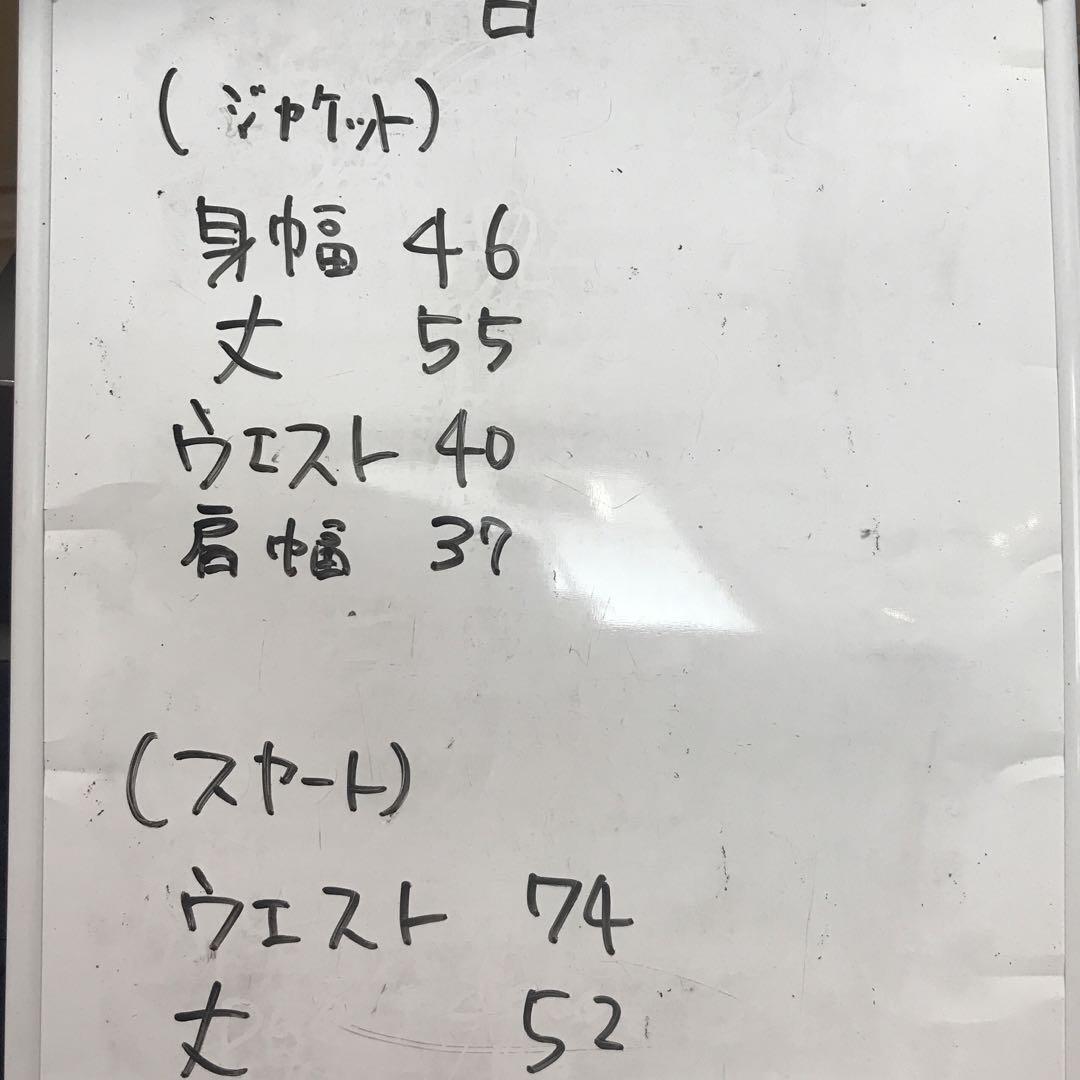 (ジャケット)
身幅 46
丈 55
ウエスト 40
肩幅 37
(スヤート)
ウエスト 74
丈 52